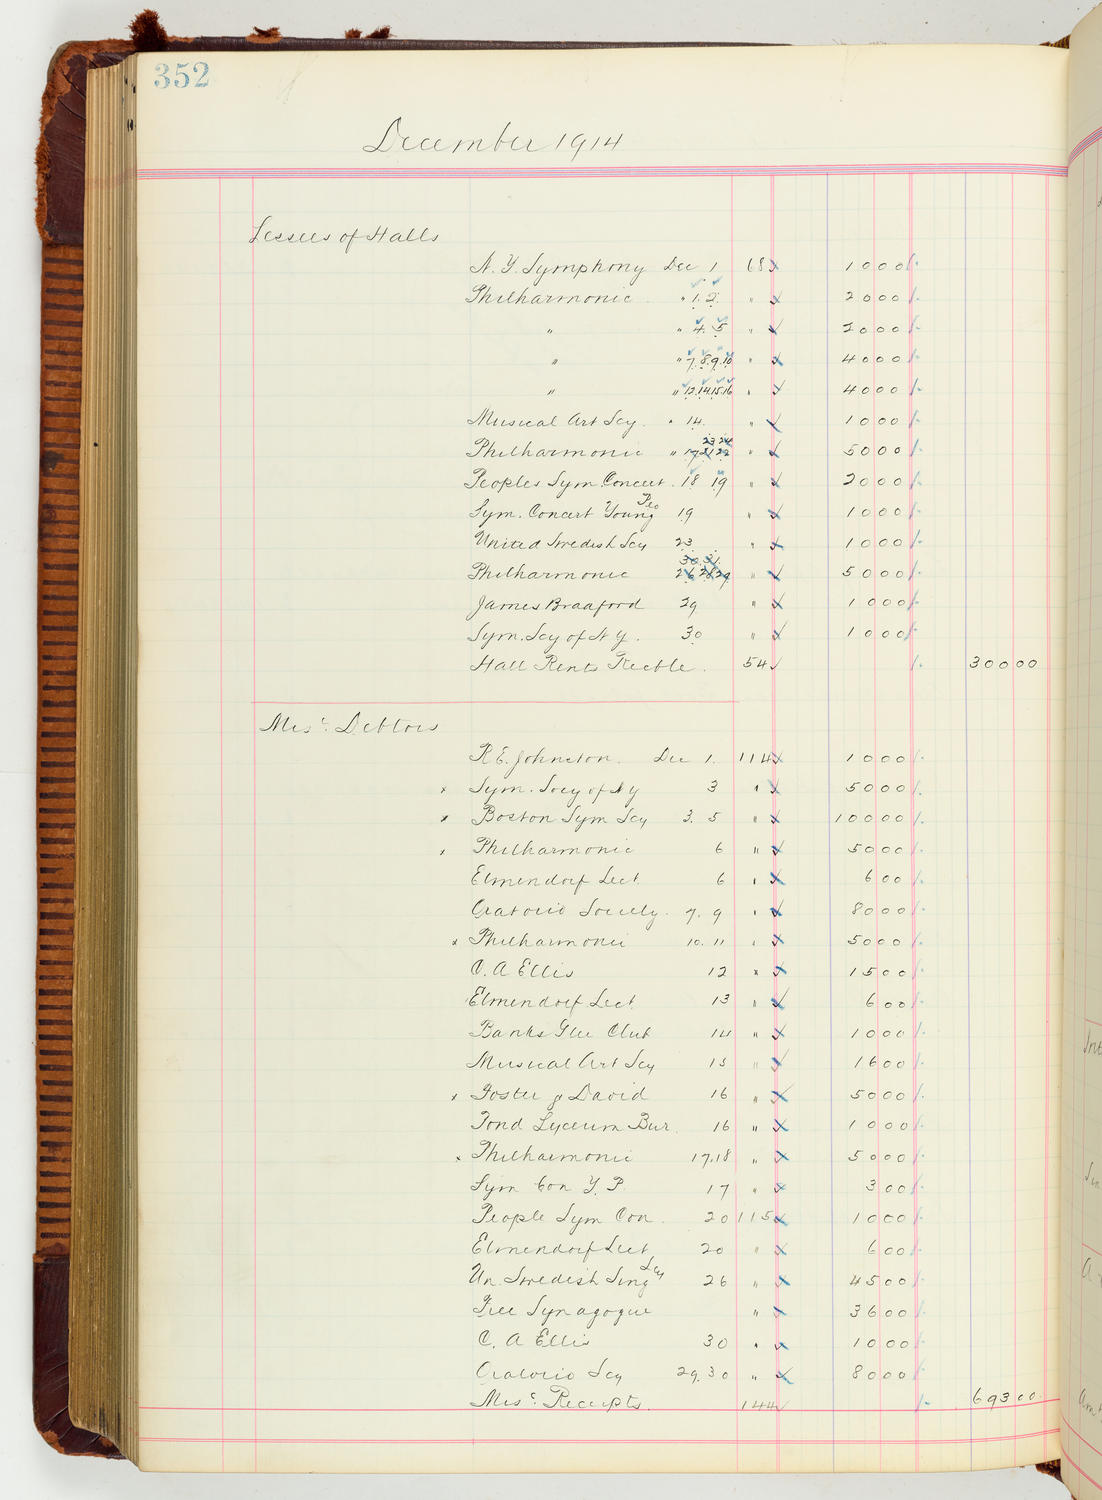 352
December 1914
Lessees of Halls
N. Y. Symphony Dec 1 68 1000
Philharmonic " 1. 2. " 2000
" " 4. 5 " 2000
" " 7. 8. 9. 10 " 4000
" " 12. 14 15 16 " 4000
Musical Art Scy. " 14. " 1000
23 24
Philharmonic " 17 21 22 " 5000
Peoples Sym. Concert. 18 19 " 2000
Sym. Concert Young Peo 19 " 1000
United Swedish Scy 23 " 1000
30. 31.
Philharmonic 26 28 29 " 5000
James Bradford 29 " 1000
Sym. Scy of N Y. 30 " 1000
Hall Rents Recble. 54 30000
Misc. Debtors
R. E. Johnston. Dec 1. 114 1000
x Sym. Socy of N Y 3 " 5000
x Boston Sym Scy 3. 5 " 10000
x Philharmonic 6 " 5000
Elmendorf Lect. 6 " 600
Oratorio Society. 7. 9 " 8000
x Philharmonic 10. 11 " 5000
C. A Ellis 12 " 1500
Elmendorf Lect. 13 " 600
Banks Glee Club 14 " 1000
Musical Art Scy 15 " 1600
x Foster & David 16 " 5000
Pond Lyceum Bur. 16 " 1000
x Philharmonic 17. 18 " 5000
Sym Con Y. P. 17 " 300
People Sym Con. 20 115 1000
Elmendorf Lect 20 " 600
Un. Swedish Sing Scy 26 " 4500
Free Synagogue " 3600
C. A Ellis 30 " 1000
Oratorio Scy 29. 30 " 8000
Misc. Receipts. 144 69300